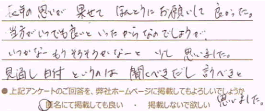 江事の思いが 果せて ほんとうにお願いして 良かった。
当方がいつでも良いといったからなのでしょうが、
いつかなーもうそろそろかなーと 少し 思いました。
見通し日付というのは 聞くべきだし 計うべきと 思いました。
●上記アンケートのご回答を、弊社ホームページに掲載してもよろしいでしょうか
匿名にて掲載しても良い ・ 掲載しないで欲しい